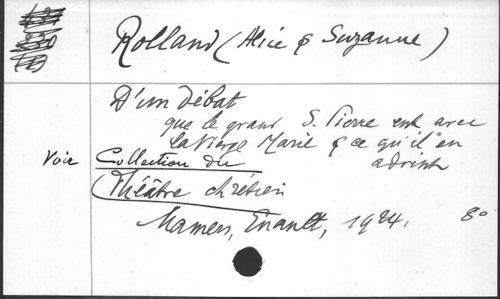 Rolland (Alice & Suzanne)
D'un débat
que le grand S. Pierre eut avec
la Vierge Marie & ce qu'il en
advint
Voir Collection du
Théâtre chrétien
Mamers, Enault, 1924. 8°